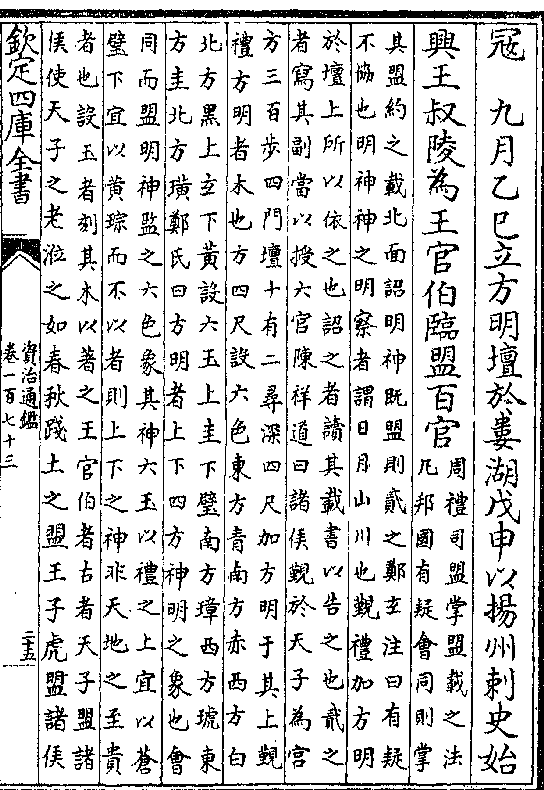 冦　九月乙巳立方明壇於婁湖戊申以揚州刺史始
興王叔陵為王官伯臨盟百官
周禮司盟掌盟載之法
凡邦國有疑會同則掌
其盟約之載北面詔明神既盟則貳之鄭𤣥注曰有疑
不協也明神神之明察者謂日月山川也覲禮加方明
於壇上所以依之也詔之者讀其載書以告之也貳之
者寫其副當以授六官陳祥道曰諸侯覲於天子為宫
方三百步四門壇十有二尋深四尺加方明于其上覲
禮方明者木也方四尺設六色東方青南方赤西方白
北方黑上𤣥下黄設六玉上圭下璧南方璋西方琥東
方圭北方璜鄭氏曰方明者上下四方神明之象也會
同而盟明神監之六色象其神六玉以禮之上宜以蒼
璧下宜以黄琮而不以者則上下之神非天地之至貴
者也設玉者刻其木以著之王官伯者古者天子盟諸
侯使天子之老涖之如春秋踐土之盟王子虎盟諸侯
欽定四庫全書
資治通鑑
卷一百七十三
二十五